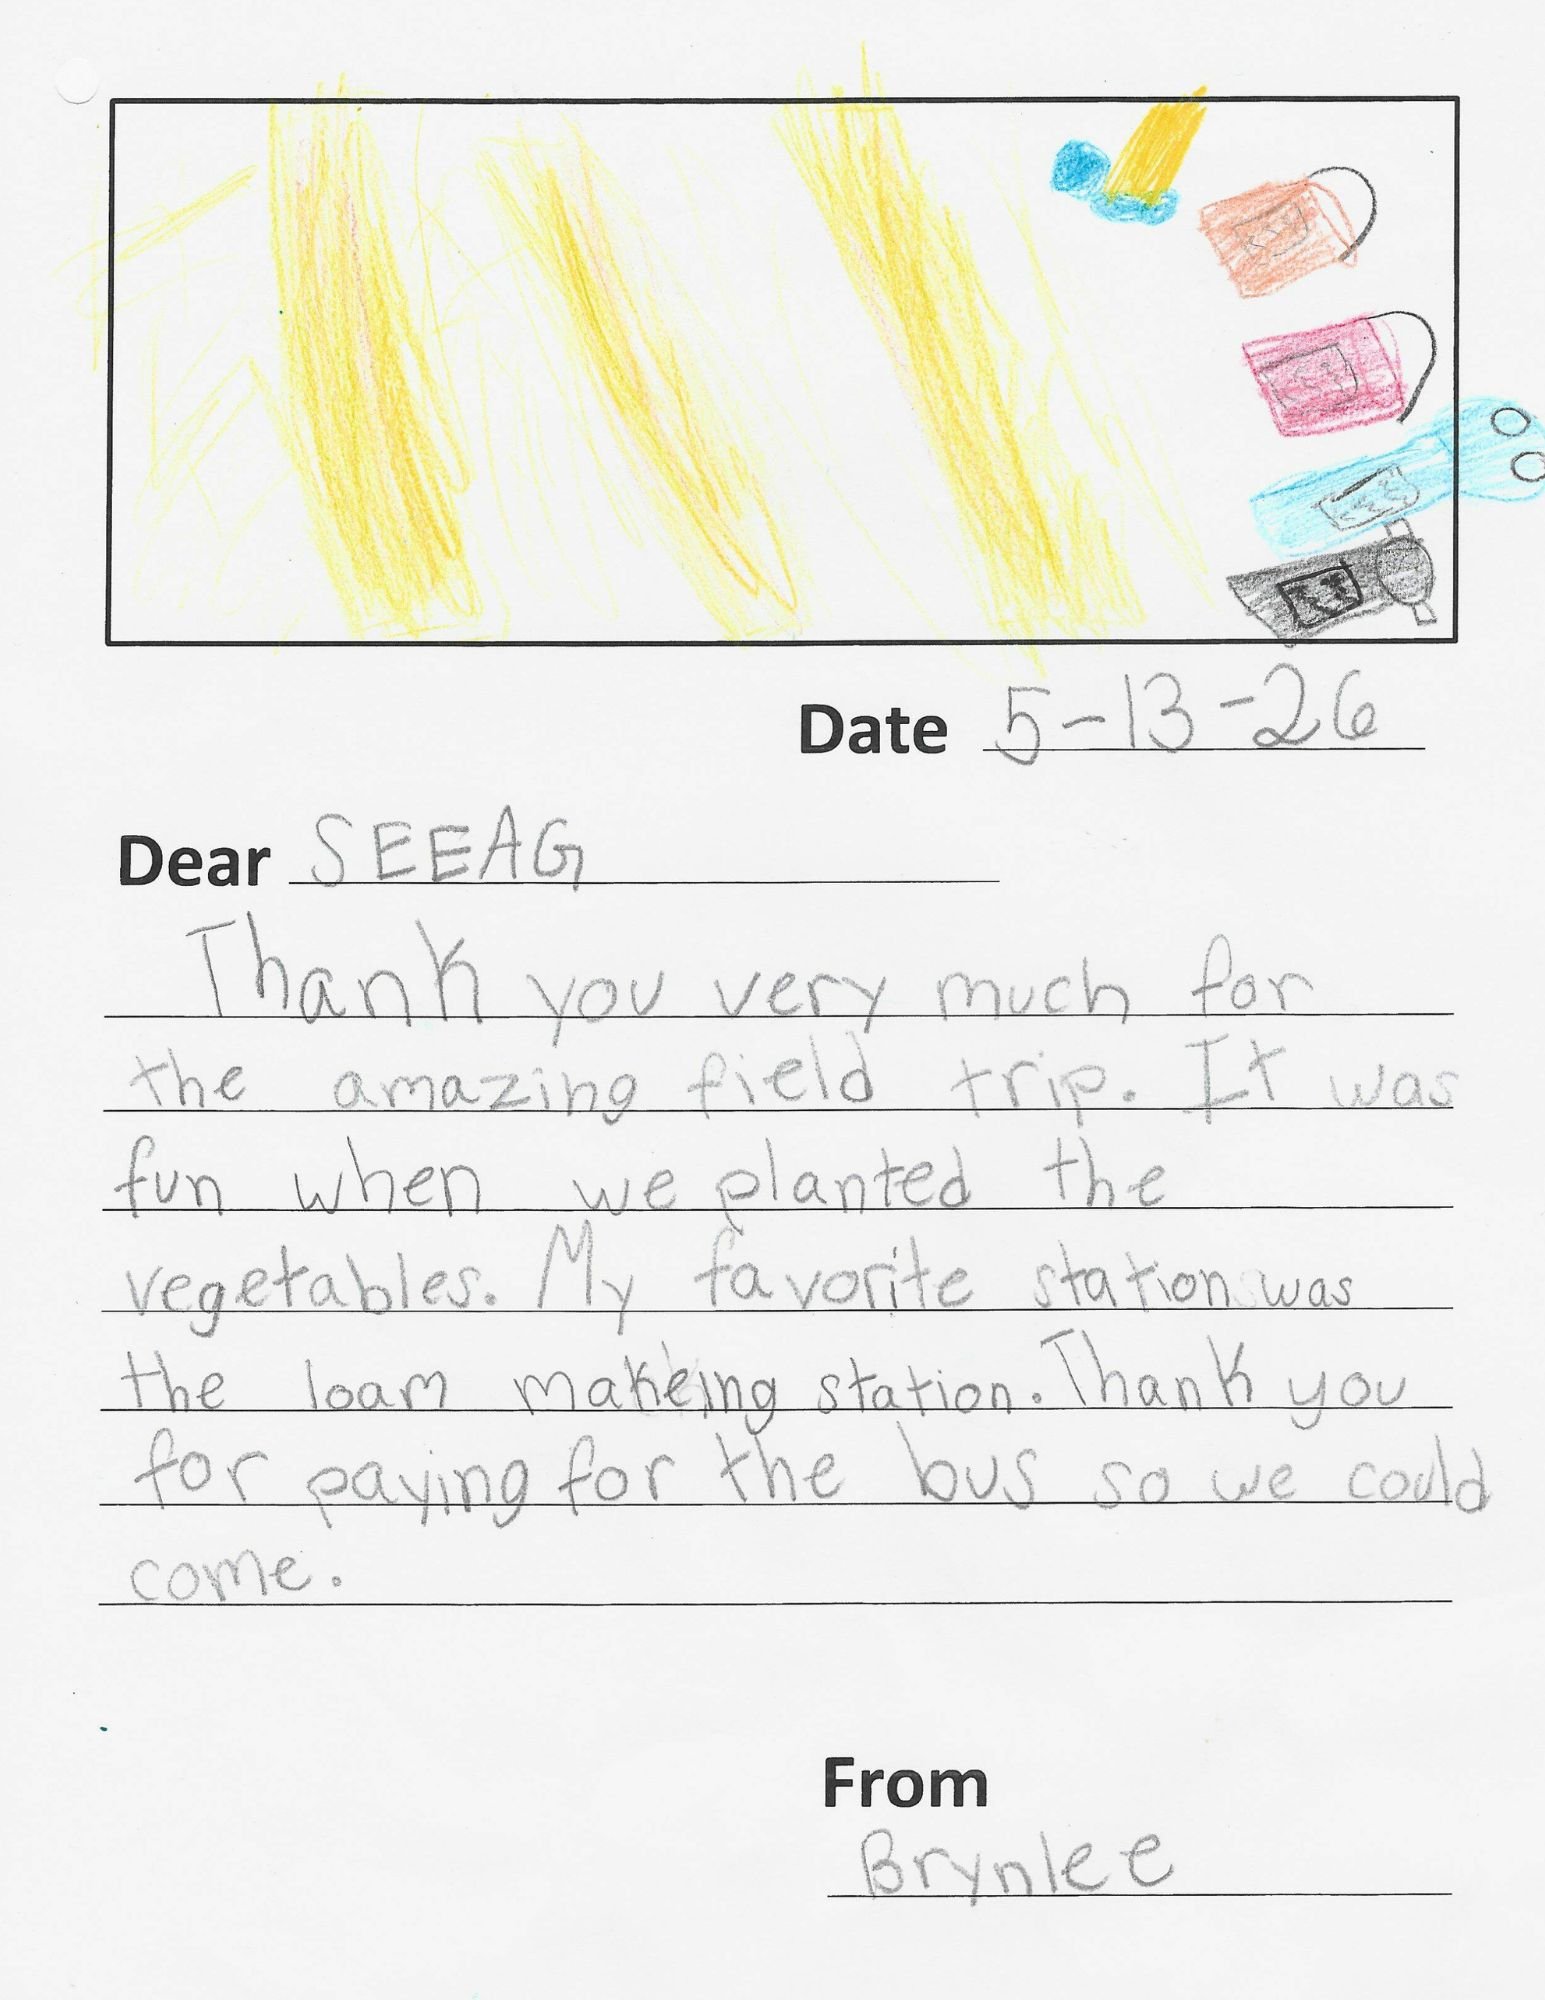 Date 5-13-26
Dear SEEAG
Thank you very much for
the amazing field trip. It was
fun when we planted the
vegetables. My favorite station was
the loam makeing station. Thank you
for paying for the bus so we could
come.
From
Brynlee